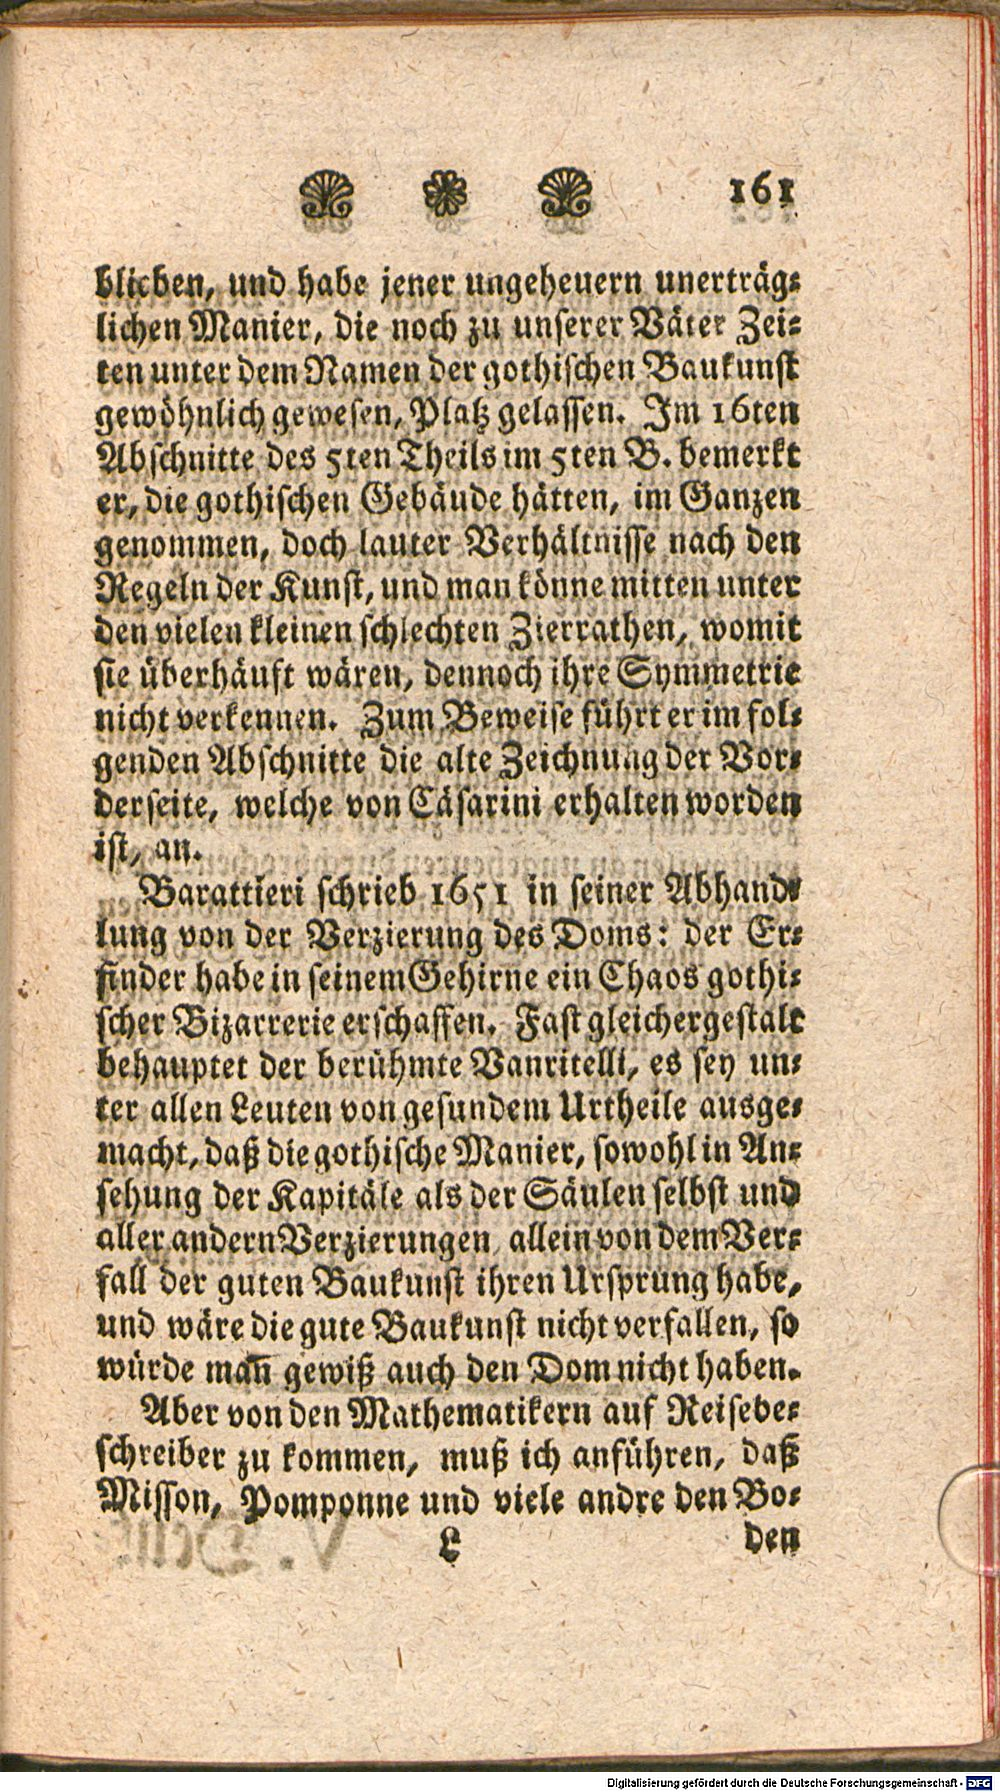 161
blieben, und habe jener ungeheuern unerträg-
lichen Manier, die noch zu unserer Väter Zei-
ten unter dem Namen der gothischen Baukunst
gewöhnlich gewesen, Platz gelassen. Im 16ten
Abschnitte des 5ten Theils im 5ten B. bemerkt
er, die gothischen Gebäude hätten, im Ganzen
genommen, doch lauter Verhältnisse nach den
Regeln der Kunst, und man könne mitten unter
den vielen kleinen schlechten Zierrathen, womit
sie überhäuft wären, dennoch ihre Symmetrie
nicht verkennen. Zum Beweise führt er im fol-
genden Abschnitte die alte Zeichnung der Vor-
derseite, welche von Cäsarini erhalten worden
ist, an.
Barattieri schrieb 1651 in seiner Abhand-
lung von der Verzierung des Doms: der Er-
finder habe in seinem Gehirne ein Chaos gothi-
scher Bizarrerie erschaffen. Fast gleichergestalt
behauptet der berühmte Vanritelli, es sey un-
ter allen Leuten von gesundem Urtheile ausge-
macht, daß die gothische Manier, sowohl in An-
sehung der Kapitäle als der Säulen selbst und
aller andern Verzierungen allein von dem Ver-
fall der guten Baukunst ihren Ursprung habe,
und wäre die gute Baukunst nicht verfallen, so
würde man̅ gewiß auch den Dom nicht haben.
Aber von den Mathematikern auf Reisebe-
schreiber zu kommen, muß ich anführen, daß
Misson, Pomponne und viele andre den Bo-
L den
Digitalisierung gefördert durch die Deutsche Forschungsgemeinschaft - DFG